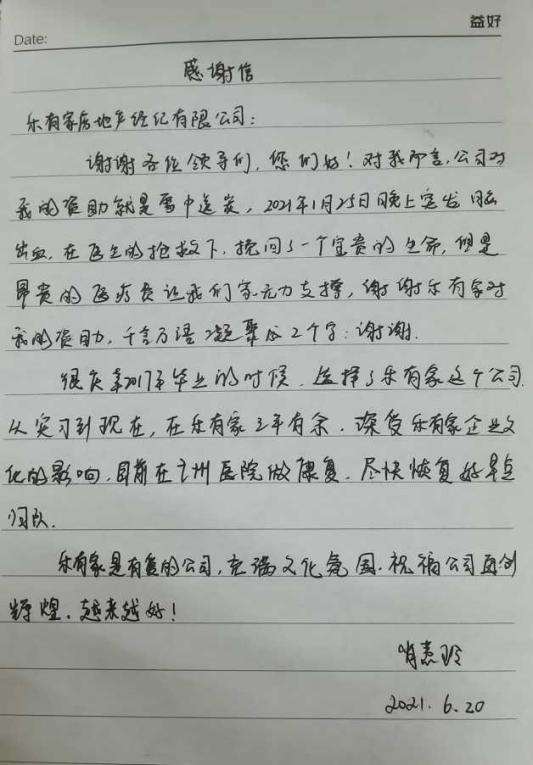 益好
Date:
感谢信
乐有家房地产经纪有限公司：
谢谢各位领导们，您们好！对我而言，公司对
我的资助就是雪中送炭，2021年1月25日晚上突发脑
出血，在医生的抢救下，挽回了一个宝贵的生命，但是
昂贵的医疗费让我们家无力支撑，谢谢乐有家对
我的资助，千言万语凝聚成2个字：谢谢.
很庆幸2017年毕业的时候，选择了乐有家这个公司.
从实习到现在，在乐有家3年有余，深受乐有家企业文
化的影响，目前在广州医院做康复，尽快恢复好早点
归队.
乐有家是有爱的公司，充满文化氛围，祝福公司再创
辉煌，越来越好！
肖惠玲
2021.6.20